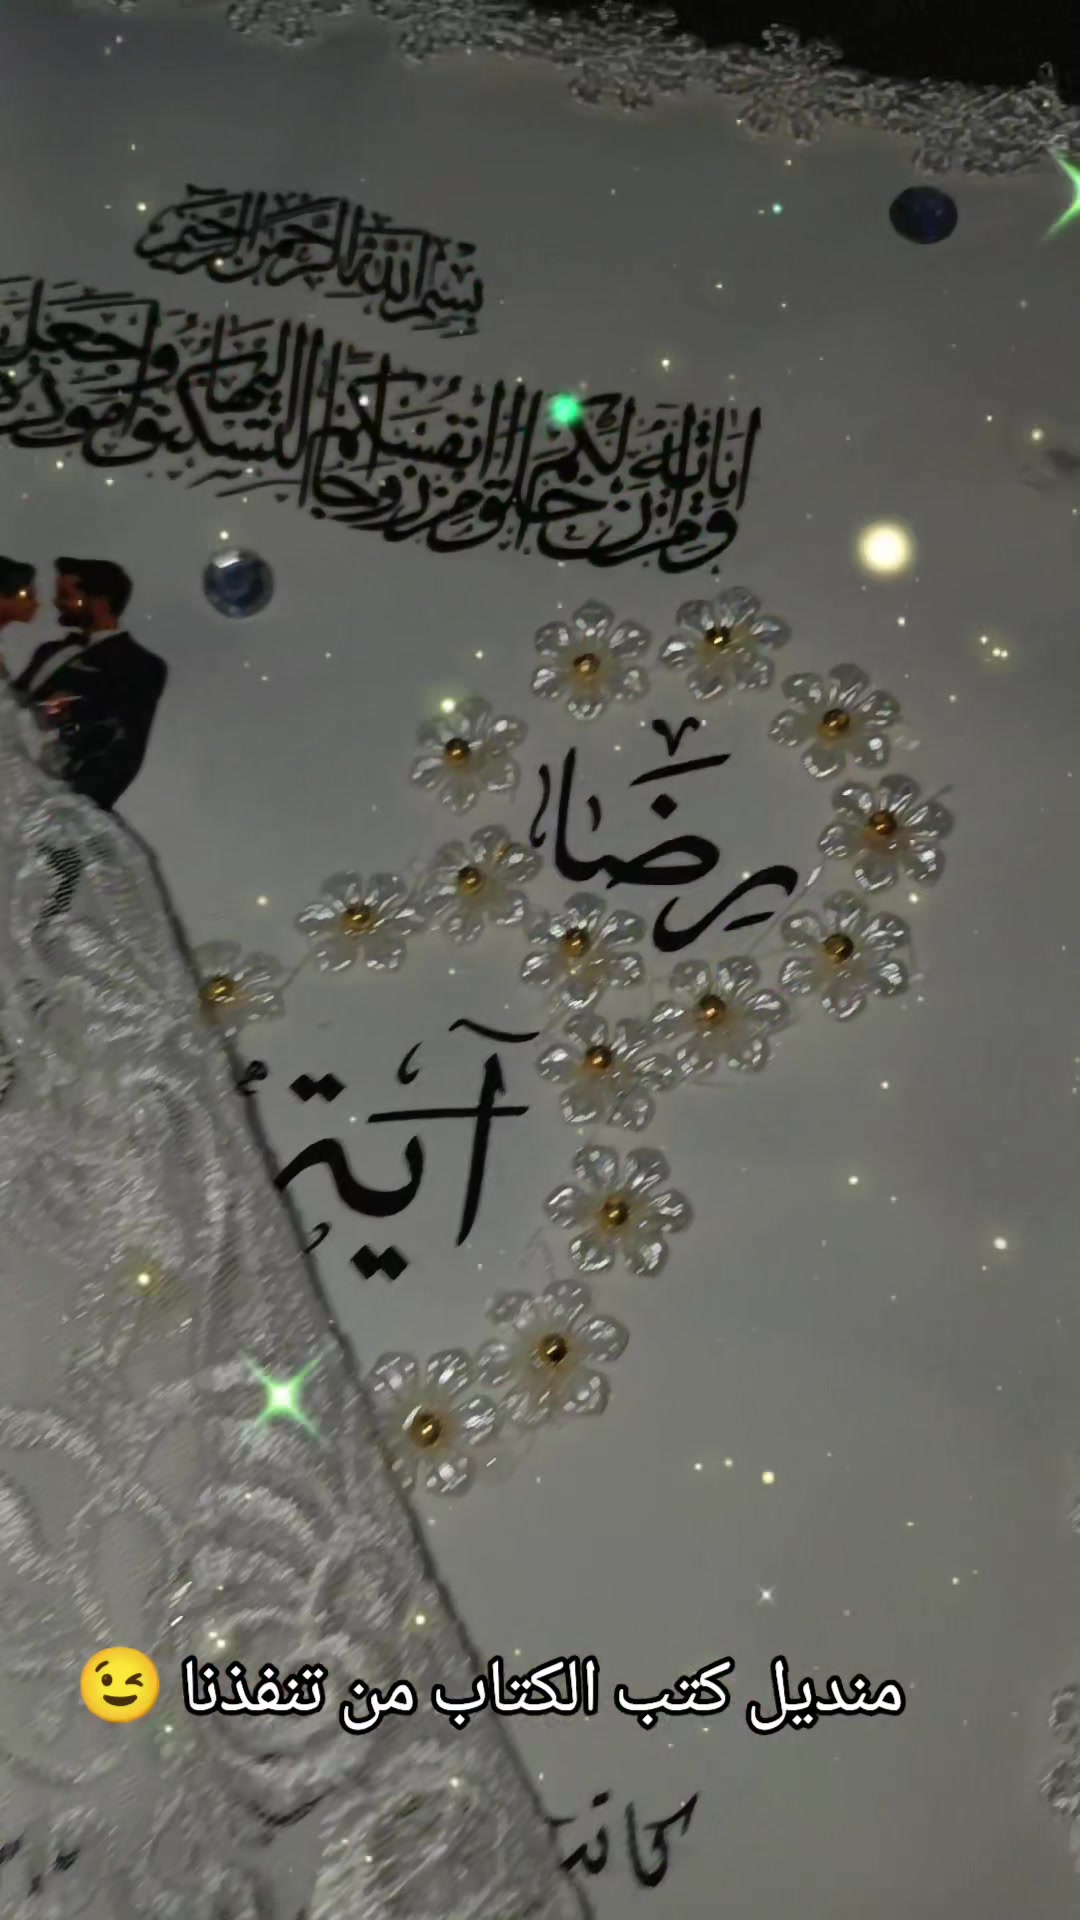 بسم الله الرحمن الرحيم
ومن اياته ان خلق لكم من انفسكم ازواجا لتسكنوا اليها وجعل
رضا
آية
منديل كتب الكتاب من تنفذنا 😉